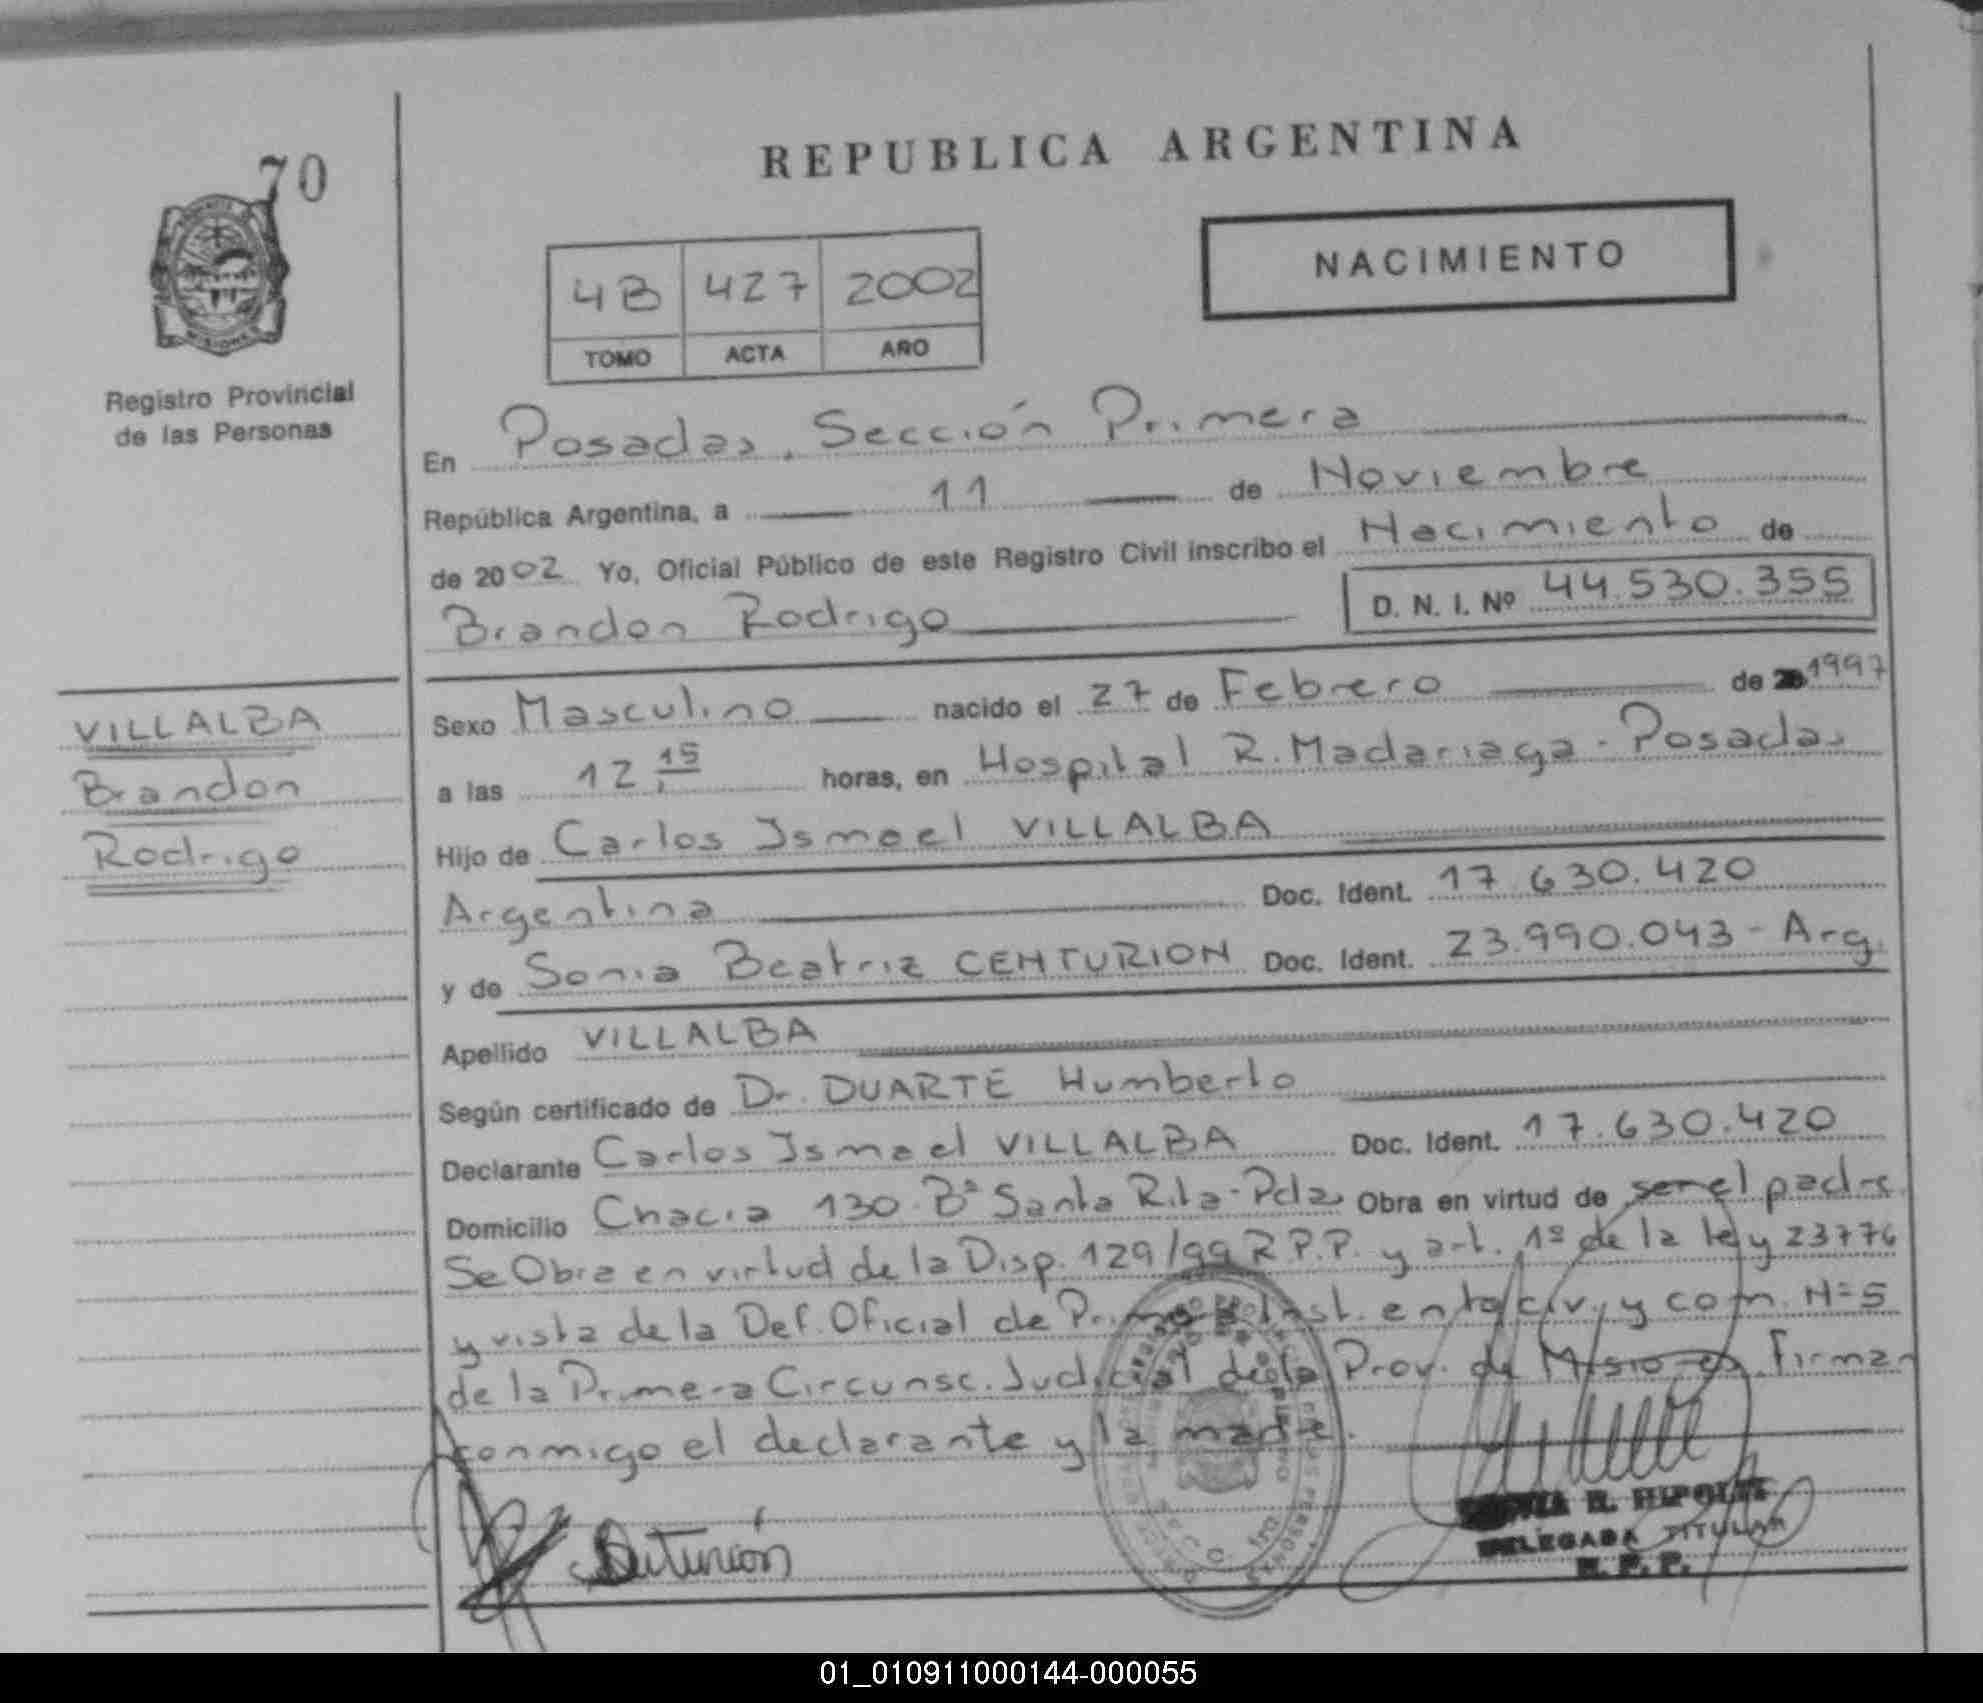 70
REPUBLICA ARGENTINA
NACIMIENTO
4B 427 2002
TOMO ACTA AÑO
Registro Provincial
de las Personas
En Posadas, Sección Primera
República Argentina, a 11 de Noviembre
de 2002 Yo, Oficial Público de este Registro Civil inscribo el Nacimiento de
Brandon Rodrigo D. N. I. Nº 44.530.355
VILLALBA
Brandon
Rodrigo
Sexo Masculino nacido el 27 de Febrero de 1997
a las 12,15 horas, en Hospital R. Madariaga - Posadas
Hijo de Carlos Ismael VILLALBA
Argentina Doc. Ident. 17.630.420
y de Sonia Beatriz CENTURION Doc. Ident. 23.990.043 - Arg.
Apellido VILLALBA
Según certificado de Dr. DUARTE Humberto
Declarante Carlos Ismael VILLALBA Doc. Ident. 17.630.420
Domicilio Chacra 130 - Bº Santa Rita - Pdas Obra en virtud de ser el padre
Se Obra en virtud de la Disp. 129/99 R.P.P. y art. 1º de la ley 23776
y vista de la Def. Oficial de Primera Inst. en lo civ. y com. N=5
de la Primera Circunsc. Judicial de la Prov. de Misiones. Firman
conmigo el declarante y la madre.
R. HIPOLIT
DELEGADA TITULAR
R. P. P.
01_010911000144-000055